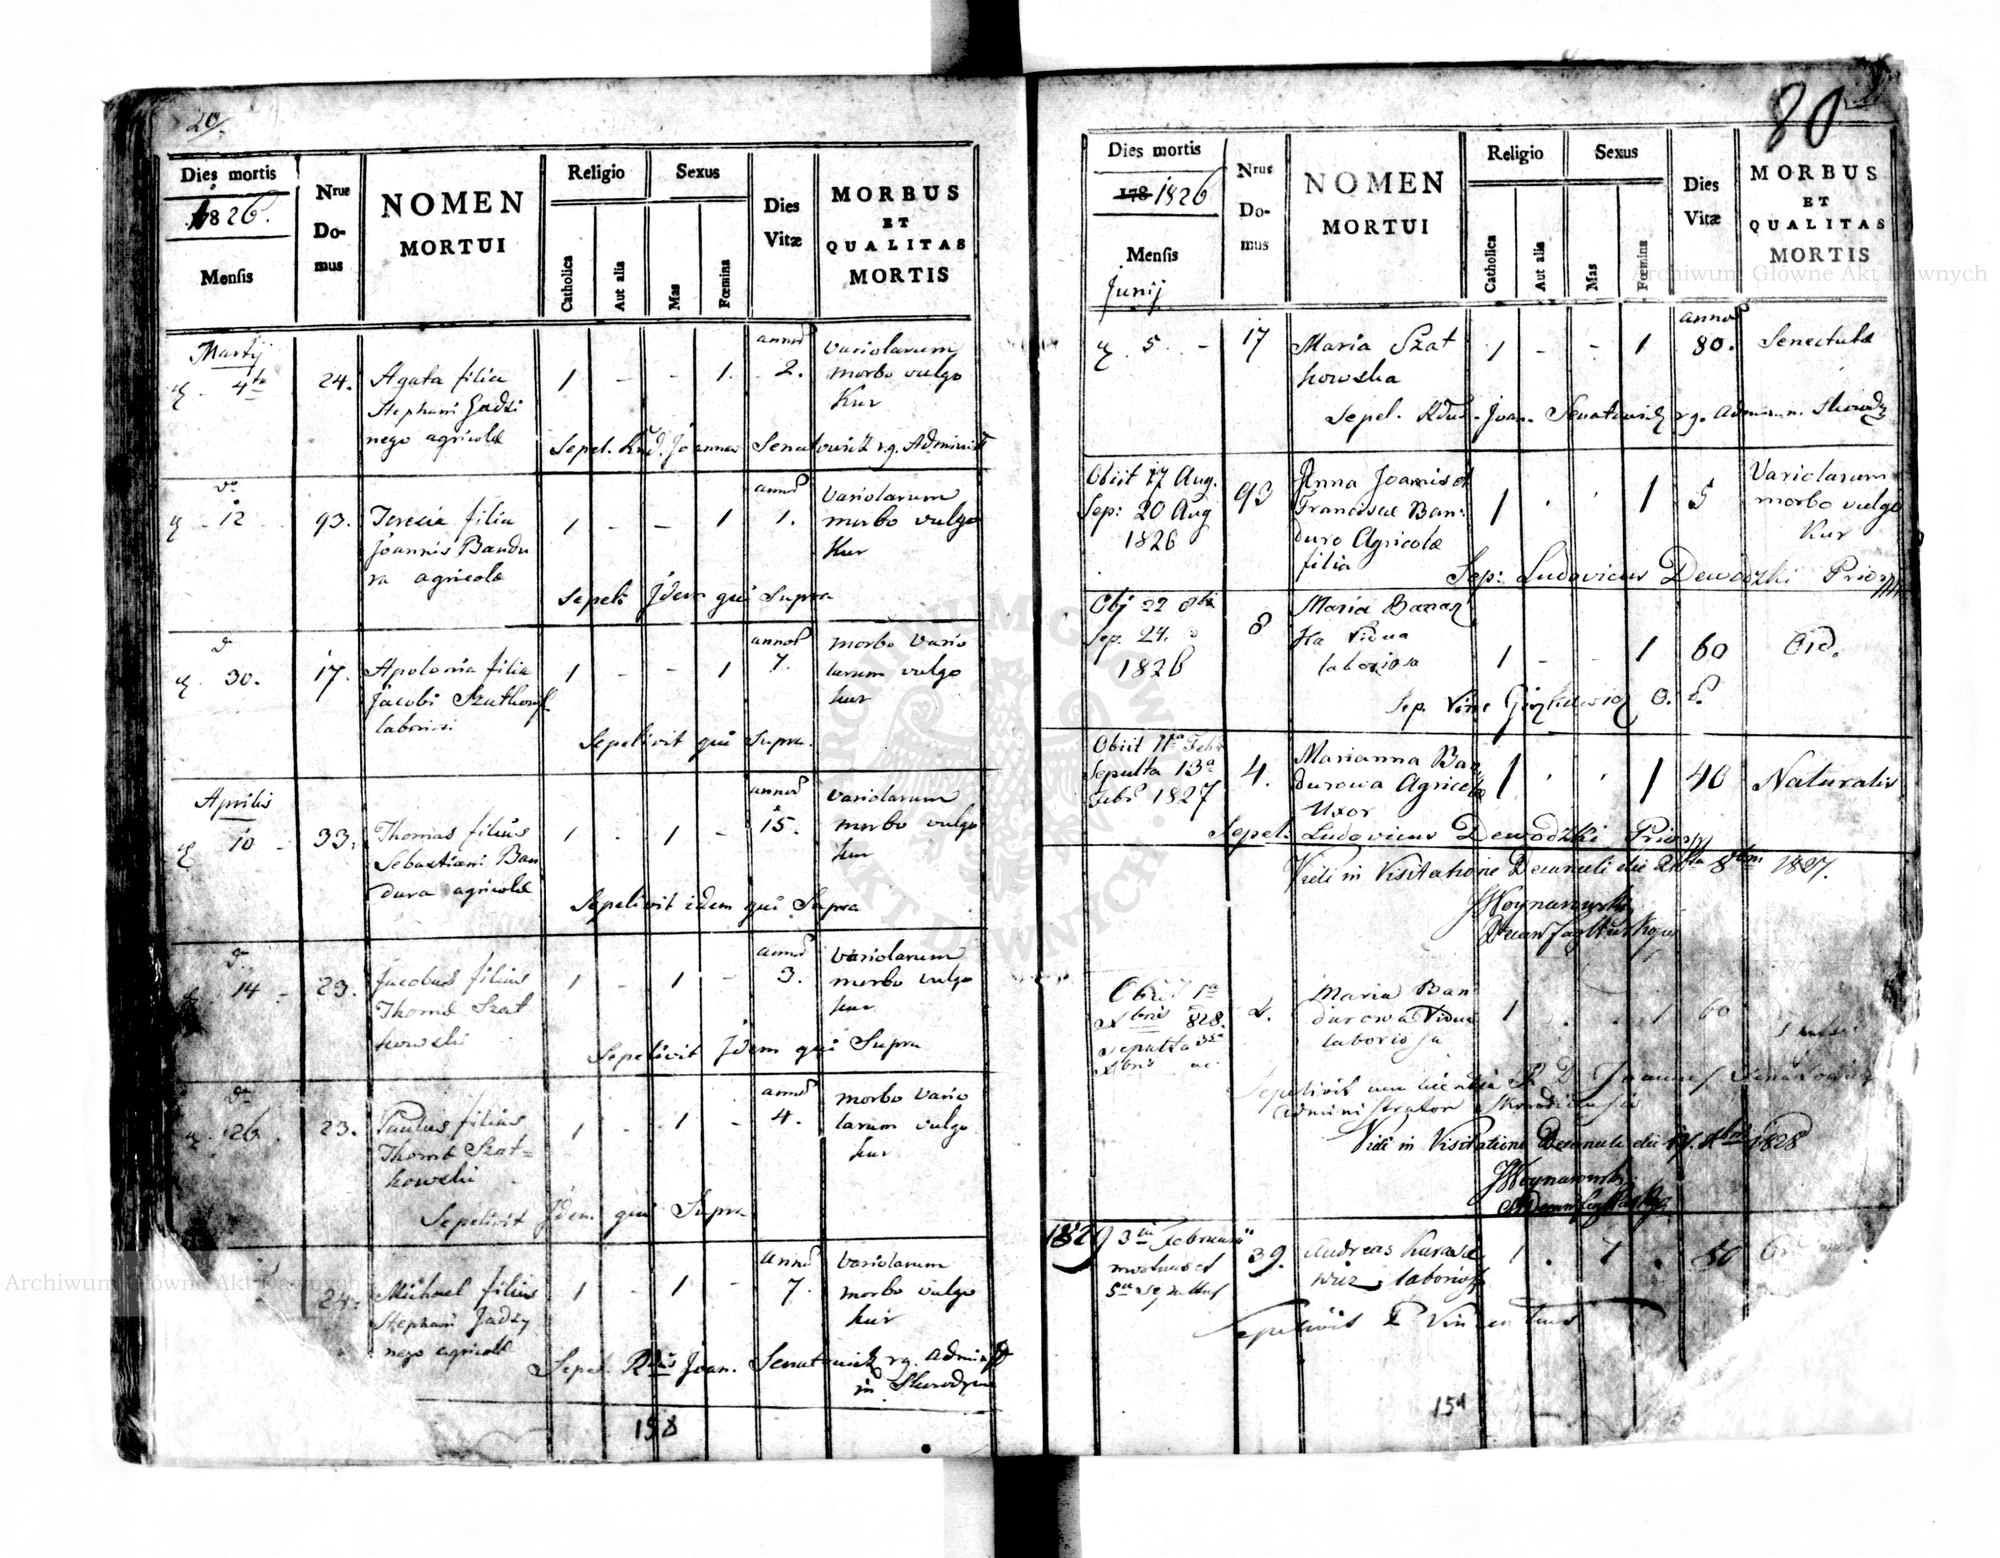 20
Dies mortis
1826.
Mensis
Nrus
Do-
mus
NOMEN
MORTUI
Religio
Catholica
Aut alia
Sexus
Mas
Fœmina
Dies
Vitæ
MORBUS
ET
QUALITAS
MORTIS
Martij
4ta
24.
Agata filia
Stephani Gadzi
nego agricolæ
1 - - 1.
annos
2.
Variolarum
morbo vulgo
Kur
Sepel. Rnd. Joannes Senatowicz r.g. Administ
12
93.
Teresia filia
Joannis Bandu
ra agricolæ
1 - - 1
annos
1.
Variolarum
morbo vulgo
Kur
Sepeli. Idem qui Supra
30.
17.
Apolonia filia
Jacobi Szatkowsk
laboriosi
1 - - 1
annos
7.
morbo vario
larum vulgo
kur
Sepelivit qui Supra.
Aprilis
10
33.
Thomas filius
Sebastiani Ban
dura agricolæ
1 - 1 -
annos
15.
Variolarum
morbo vulgo
kur
Sepelivit idem qui Supra
14
23.
Jacobus filius
Thomæ Szat
kowski
1 - 1 -
annos
3.
Variolarum
morbo vulgo
kur
Sepelivit Idem qui Supra
26
23.
Paulus filius
Thomæ Szat=
kowski
1 - 1 -
annos
4.
morbo vario
larum vulgo
kur
Sepelivit Idem qui Supra
24.
Michael filius
Stephani Gadzy
nego agricolæ
1 - 1 -
annos
7.
Variolarum
morbo vulgo
kur
Sepel. Rdus Joan. Senatowicz r.g. Administ
in
158
80
Dies mortis
178 1826
Mensis
Junij
Nrus
Do-
mus
NOMEN
MORTUI
Religio
Catholica
Aut alia
Sexus
Mas
Fœmina
Dies
Vitæ
MORBUS
ET
QUALITAS
MORTIS
5 -
17
Maria Szat
kowska
1 - - 1
annos
80.
Senectute
Sepel. Rdus. Joan. Senatowicz r.g. Admin.
Obiit 17 Aug.
Sep: 20 Aug
1826
93
Anna Joannis et
Franciscæ Ban:
duro Agricolæ
filia
1 . . 1
5
Variolarum
morbo vulgo
Kur
Sep: Ludovicus Dewodzki Prior
Obj 22 8bris
Sep. 24.
1826
8
Maria Banas
ka Vidua
laboriosa
1 - - 1
60
Ord.
Sep. Vinc O. C.
Obiit 11a Febr
Sepulta 13a
Febr 1827
4.
Marianna Ban
durowa Agricolæ
Uxor
1 . . 1
40
Naturalis
Sepel. Ludovicus Dewodzki Prior
Vidi in Visitatione Decanali die 1827.
JWoynarowski
Obiit 1a
Xbris 828.
sepulta 3a
Xbris
2.
Maria Ban
durowa Vidua
laboriosa
1 . . 1
60
Sepelivit R. D. Joannes Senatowicz
administrator
Vidi in Visitatione Decanali die Xbris 1828
JWoynarowski
1829
3tia Februarii
mortuus et
5ta sepultus
39.
Andreas Kurase
wicz laborios
1 . 1 .
50
Sepelivit P Vincentius
159
Archiwum Główne Akt Dawnych
Archiwum Główne Akt Dawnych
ARCHIWUM GŁÓWNE AKT DAWNYCH